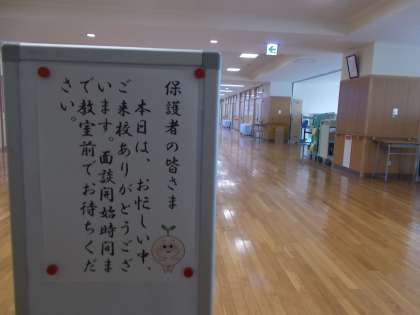 保護者の皆さま
本日は、お忙しい中、
ご来校ありがとうござ
います。面談開始時間ま
で教室前でお待ちくだ
さい。